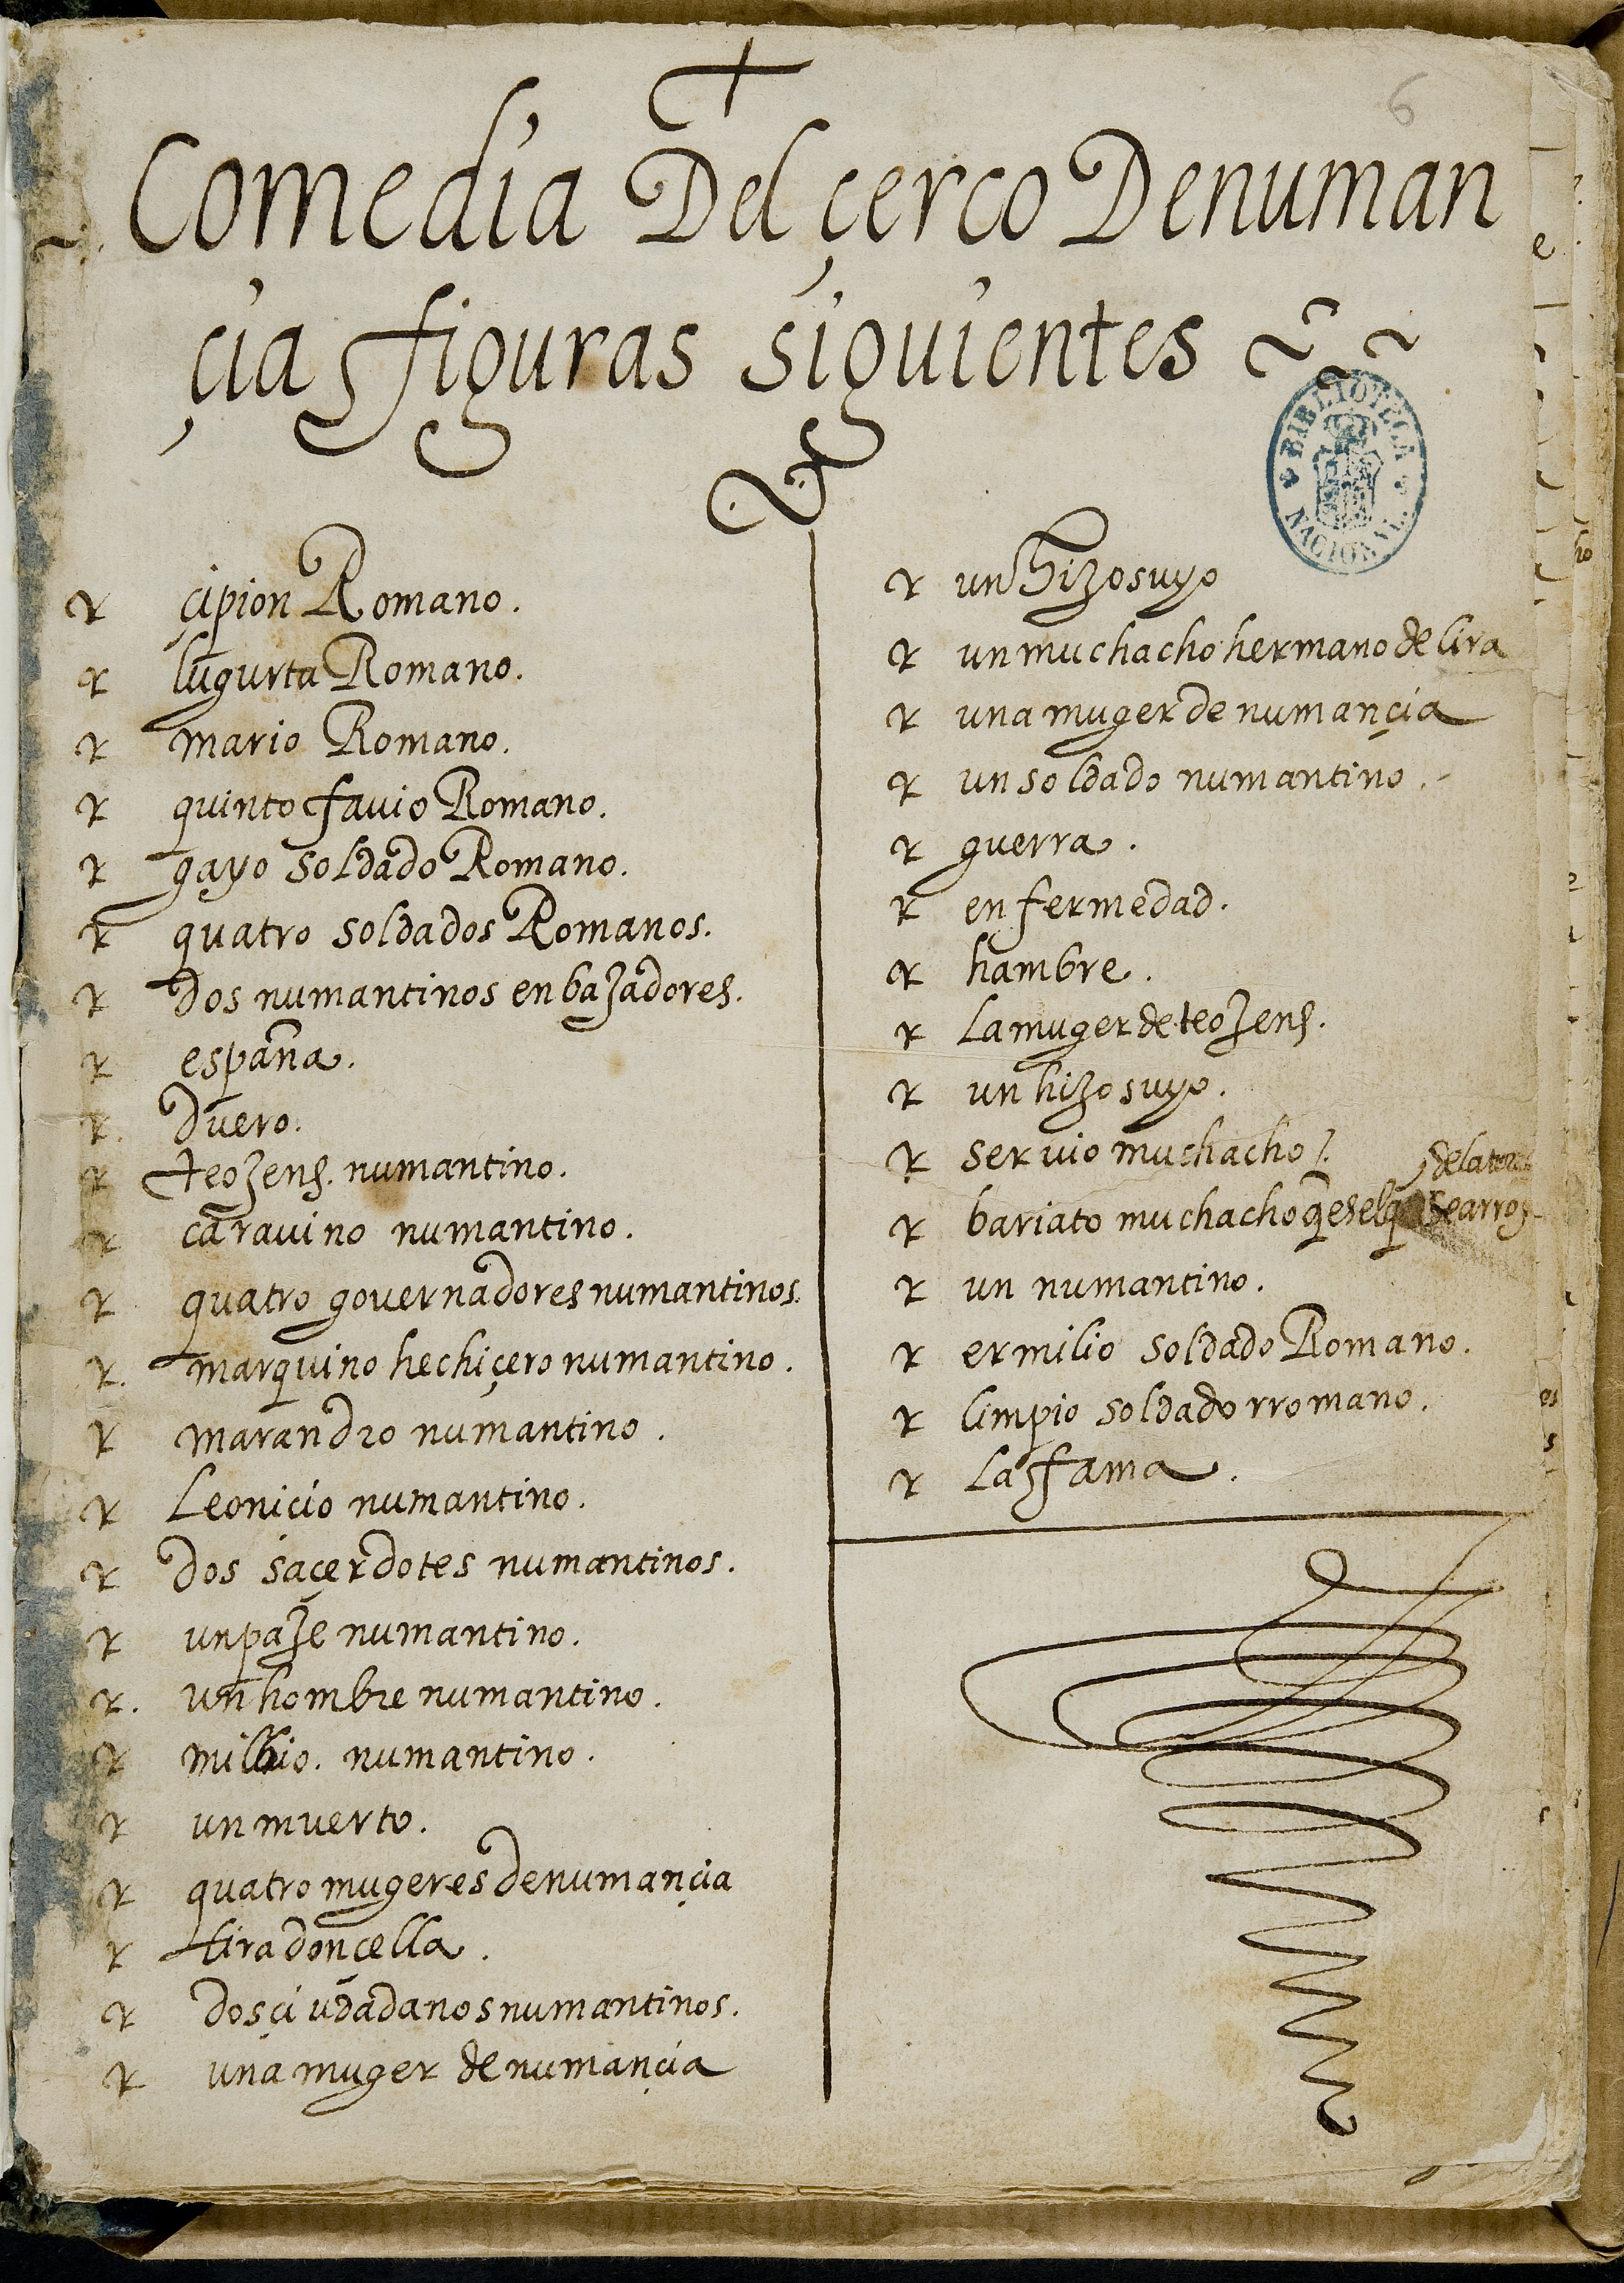 6
Comedia Del çerco Denuman
çia ffiguras siguientes
BIBLIOTECA NACIONAL
çipion Romano.
Iugurta Romano.
mario Romano.
quinto favio Romano.
gayo soldado Romano.
quatro soldados Romanos.
dos numantinos enbajadores.
españa.
duero.
teojenes. numantino.
caravino numantino.
quatro governadores numantinos.
marquino hechiçero numantino.
marandro numantino.
Leonicio numantino.
dos saçerdotes numantinos.
un paje numantino.
un hombre numantino.
milbio. numantino.
un muerto.
quatro mugeres denumançia
lira donçella.
dos çiudadanos numantinos.
una muger de numançia
un hijo suyo
un muchacho hermano de lira
una muger de numançia
un soldado numantino.
guerra.
enfermedad.
hambre.
La muger de teojenes.
un hijo suyo.
servio muchacho.
bariato muchacho q es el q se arroj
de la torre
un numantino.
ermilio soldado Romano.
limpio soldado rromano.
La ffama.